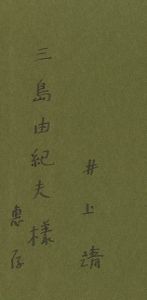 三島由紀夫様
恵存
井上靖